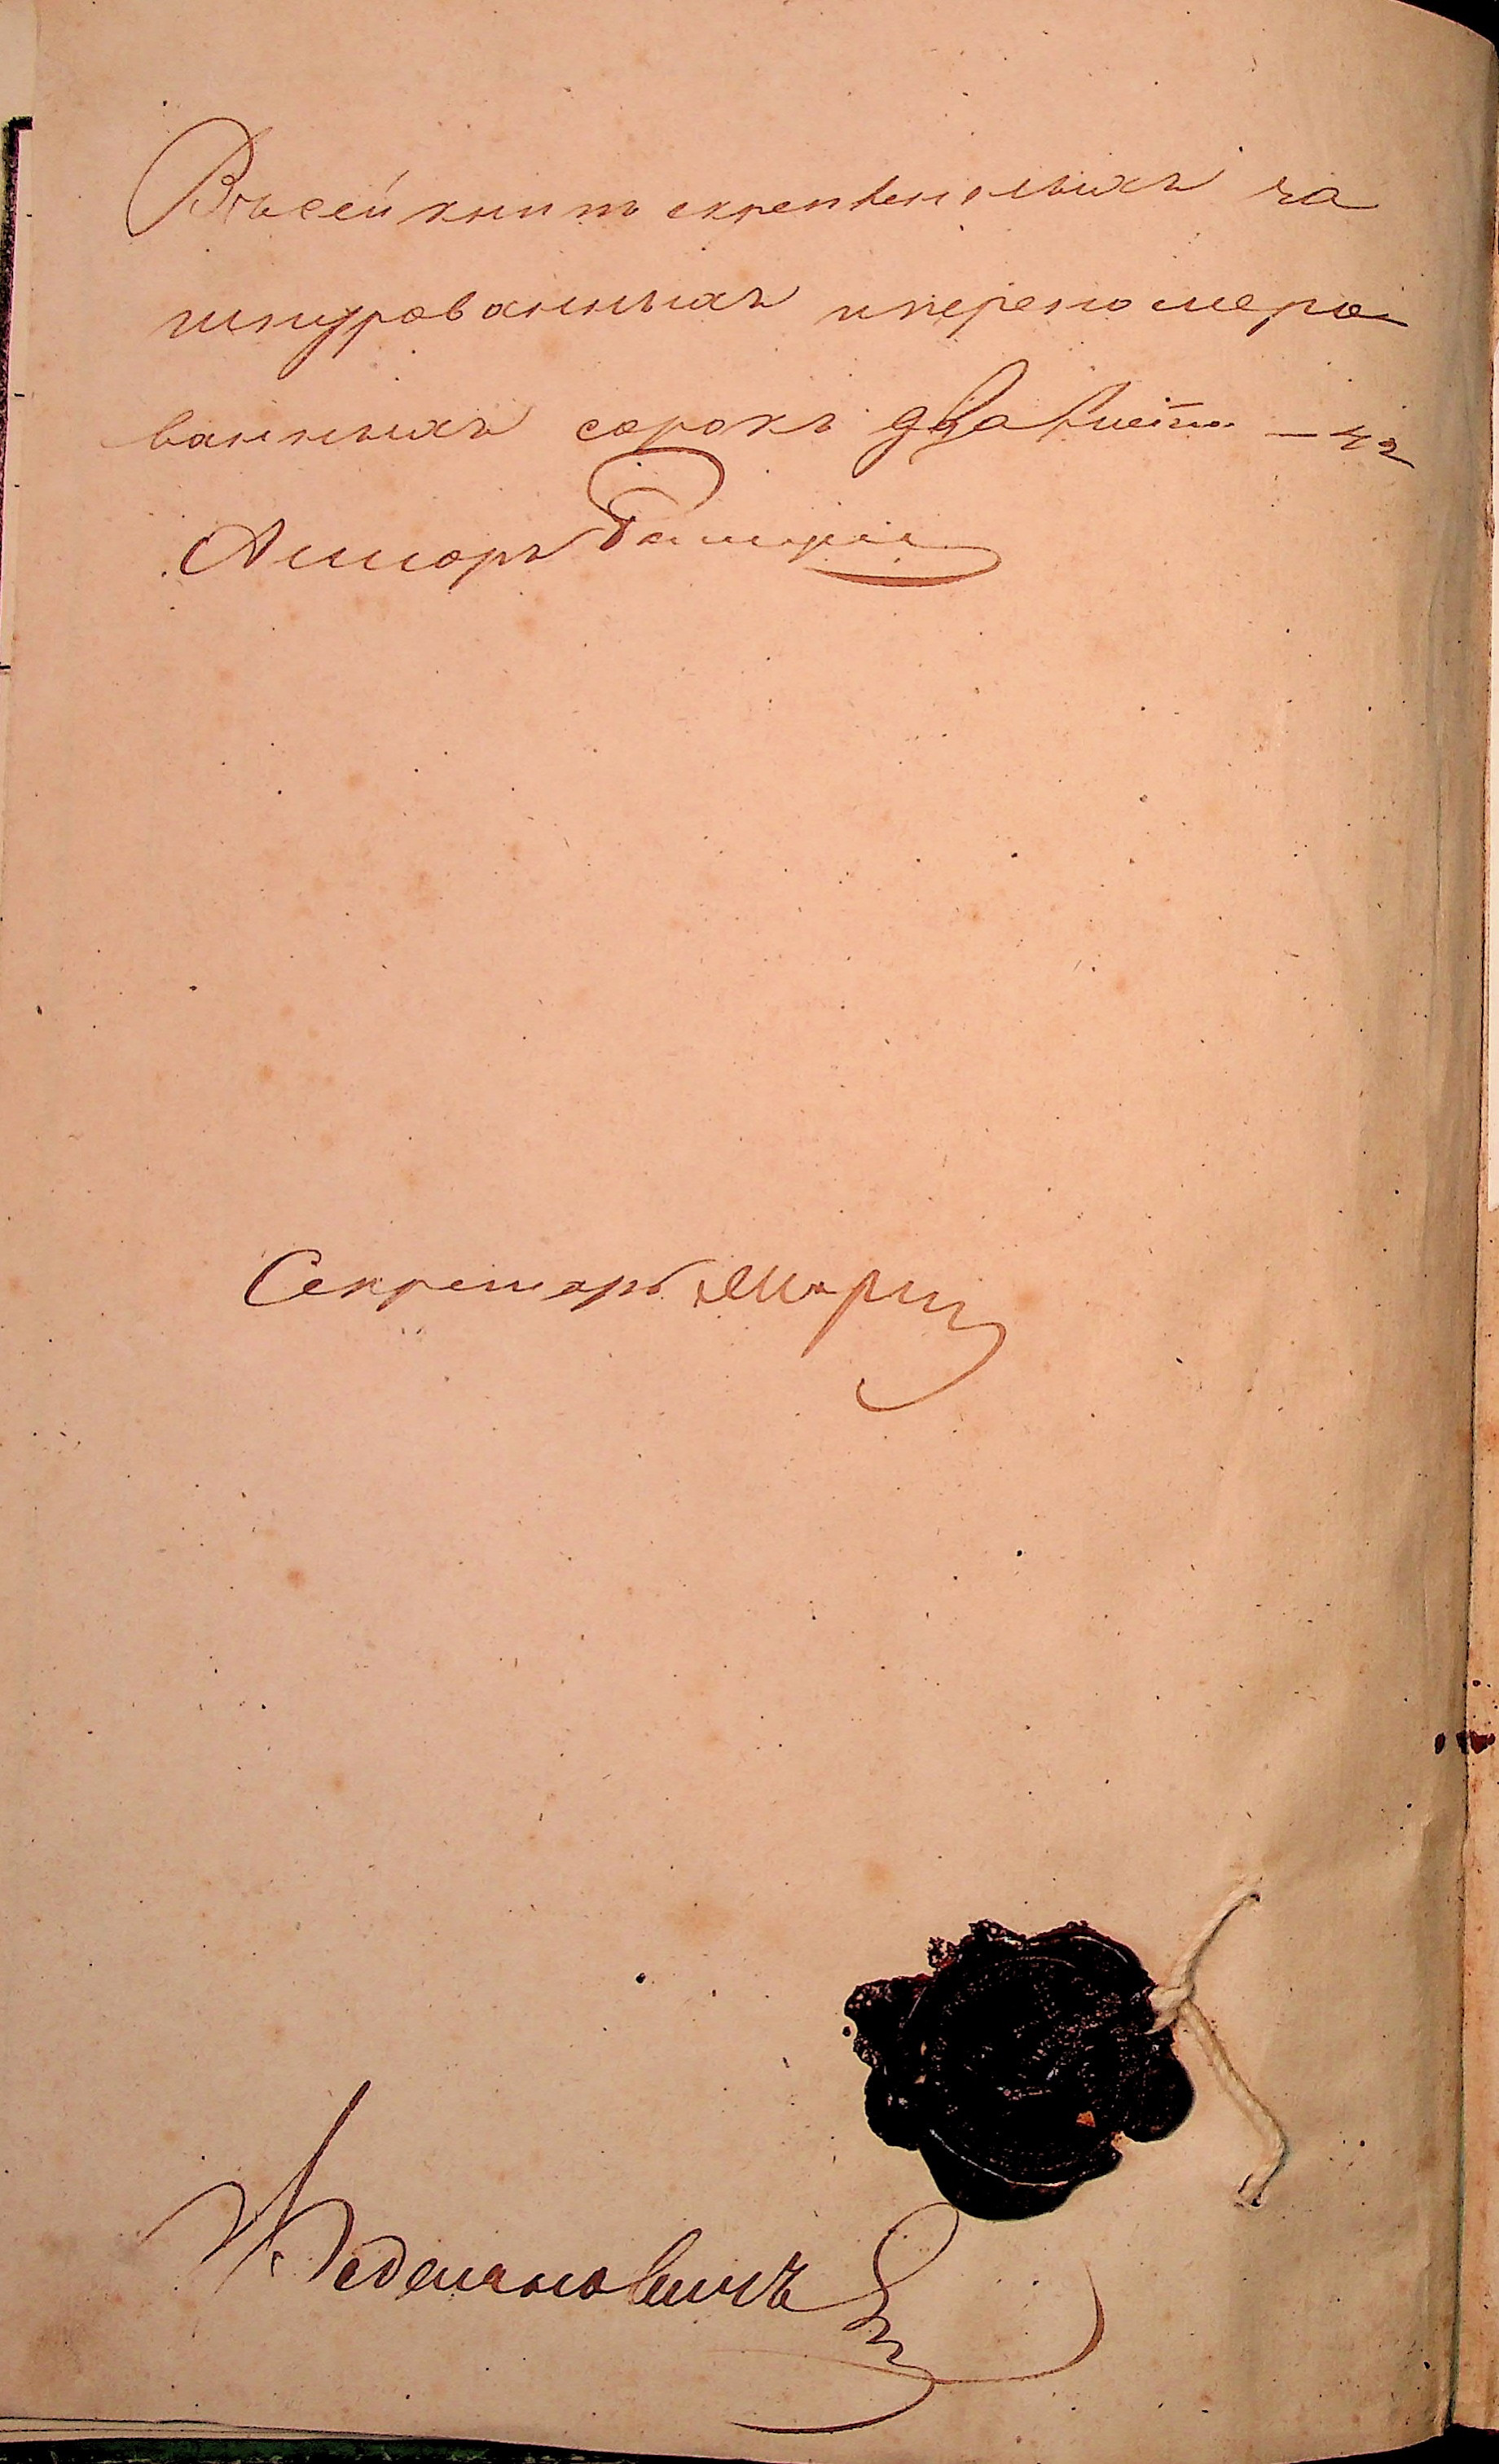 Въ сей книги скрепленныхъ за
шнурованныхъ и перепомеро
ванныхъ сорокъ два листа — 42
Секретарь